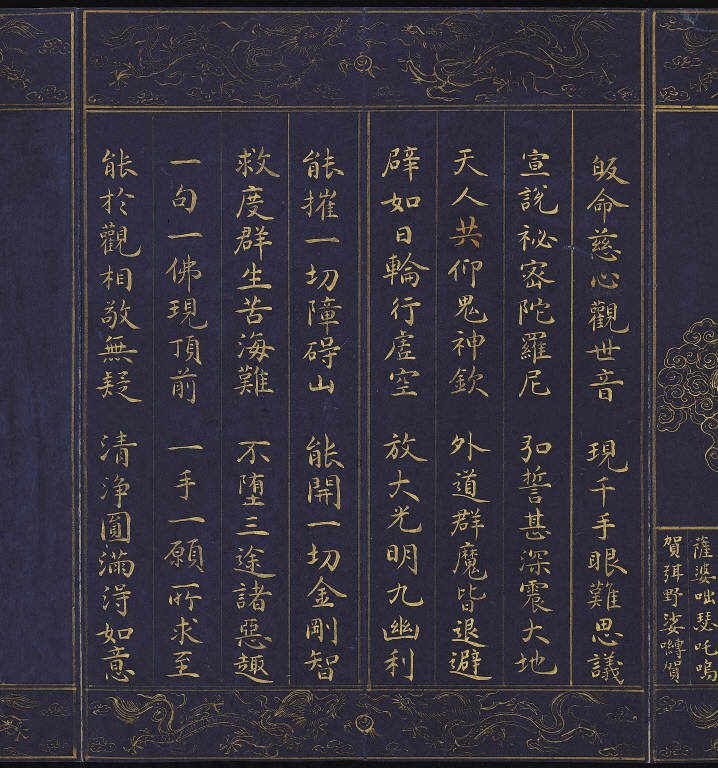 薩婆咄瑟吒嗚
賀弭野娑嚩賀
皈命慈心觀世音 現千手眼難思議
宣說祕密陀羅尼 弘誓甚深震大地
天人共仰鬼神欽 外道群魔皆退避
辟如日輪行虛空 放大光明九幽利
能摧一切障碍山 能開一切金剛智
救度群生苦海難 不墮三途諸惡趣
一句一佛現頂前 一手一願所求至
能於觀相敬無疑 清淨圓滿得如意